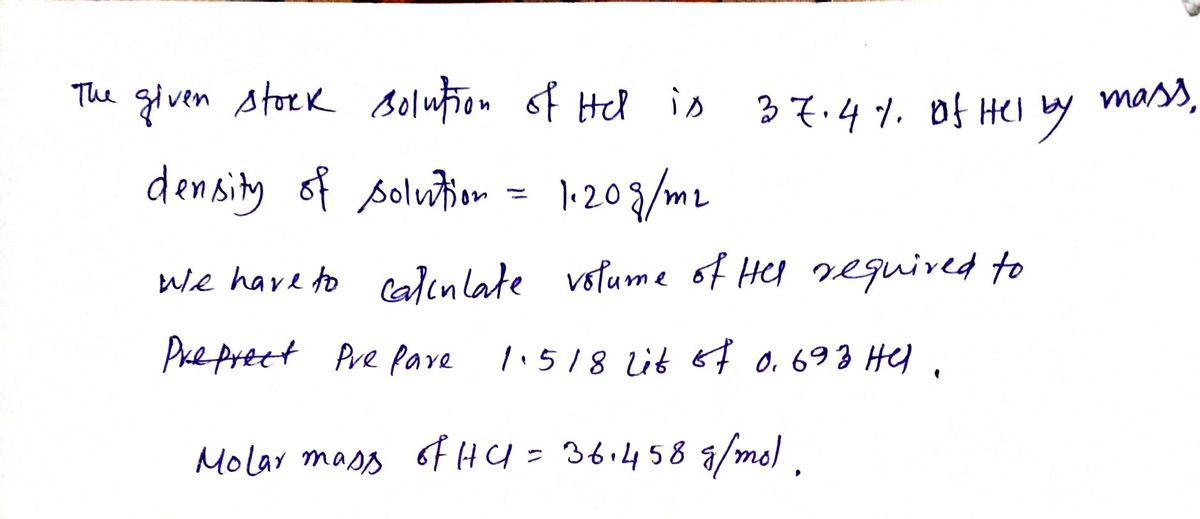 The given stock solution of HCl is 37.4 %. Of HCl by mass,
density of solution = 1.20 g/mL
We have to calculate volume of HCl required to
Preprect Prepare 1.518 lit of 0.693 HCl.
Molar mass of HCl = 36.458 g/mol.